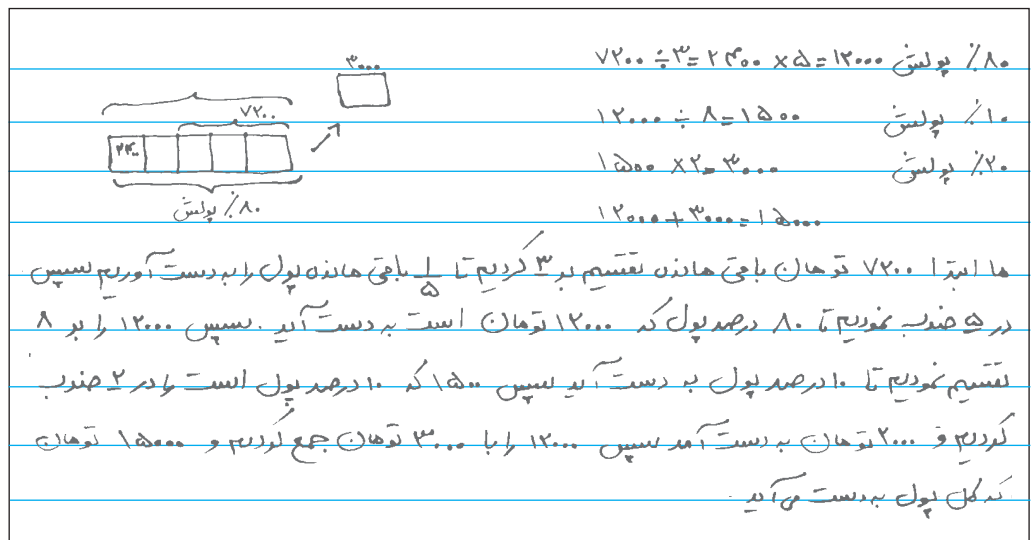 ۸۰٪ پولش ۷۲۰۰ ÷ ۳ = ۲۴۰۰ × ۵ = ۱۲۰۰۰
۳۰۰۰
۱۰٪ پولش ۱۲۰۰۰ ÷ ۸ = ۱۵۰۰
۷۲۰۰
۲۴۰۰
۲۰٪ پولش ۱۵۰۰ × ۲ = ۳۰۰۰
۸۰٪ پولش
۱۲۰۰۰ + ۳۰۰۰ = ۱۵۰۰۰
ما ابتدا ۷۲۰۰ تومان باقی مانده تقسیم بر ۳ کردیم تا ۱/۵ باقی مانده پول را به دست آوریم سپس
در ۵ ضرب نمودیم تا ۸۰ درصد پول که ۱۲۰۰۰ تومان است به دست آید. سپس ۱۲۰۰۰ را بر ۸
تقسیم نمودیم تا ۱۰ درصد پول به دست آید سپس ۱۵۰۰ که ۱۰ درصد پول است را در ۲ ضرب
کردیم و ۳۰۰۰ تومان به دست آمد سپس ۱۲۰۰۰ را با ۳۰۰۰ تومان جمع کردیم و ۱۵۰۰۰ تومان
که کل پول به دست می‌آید.